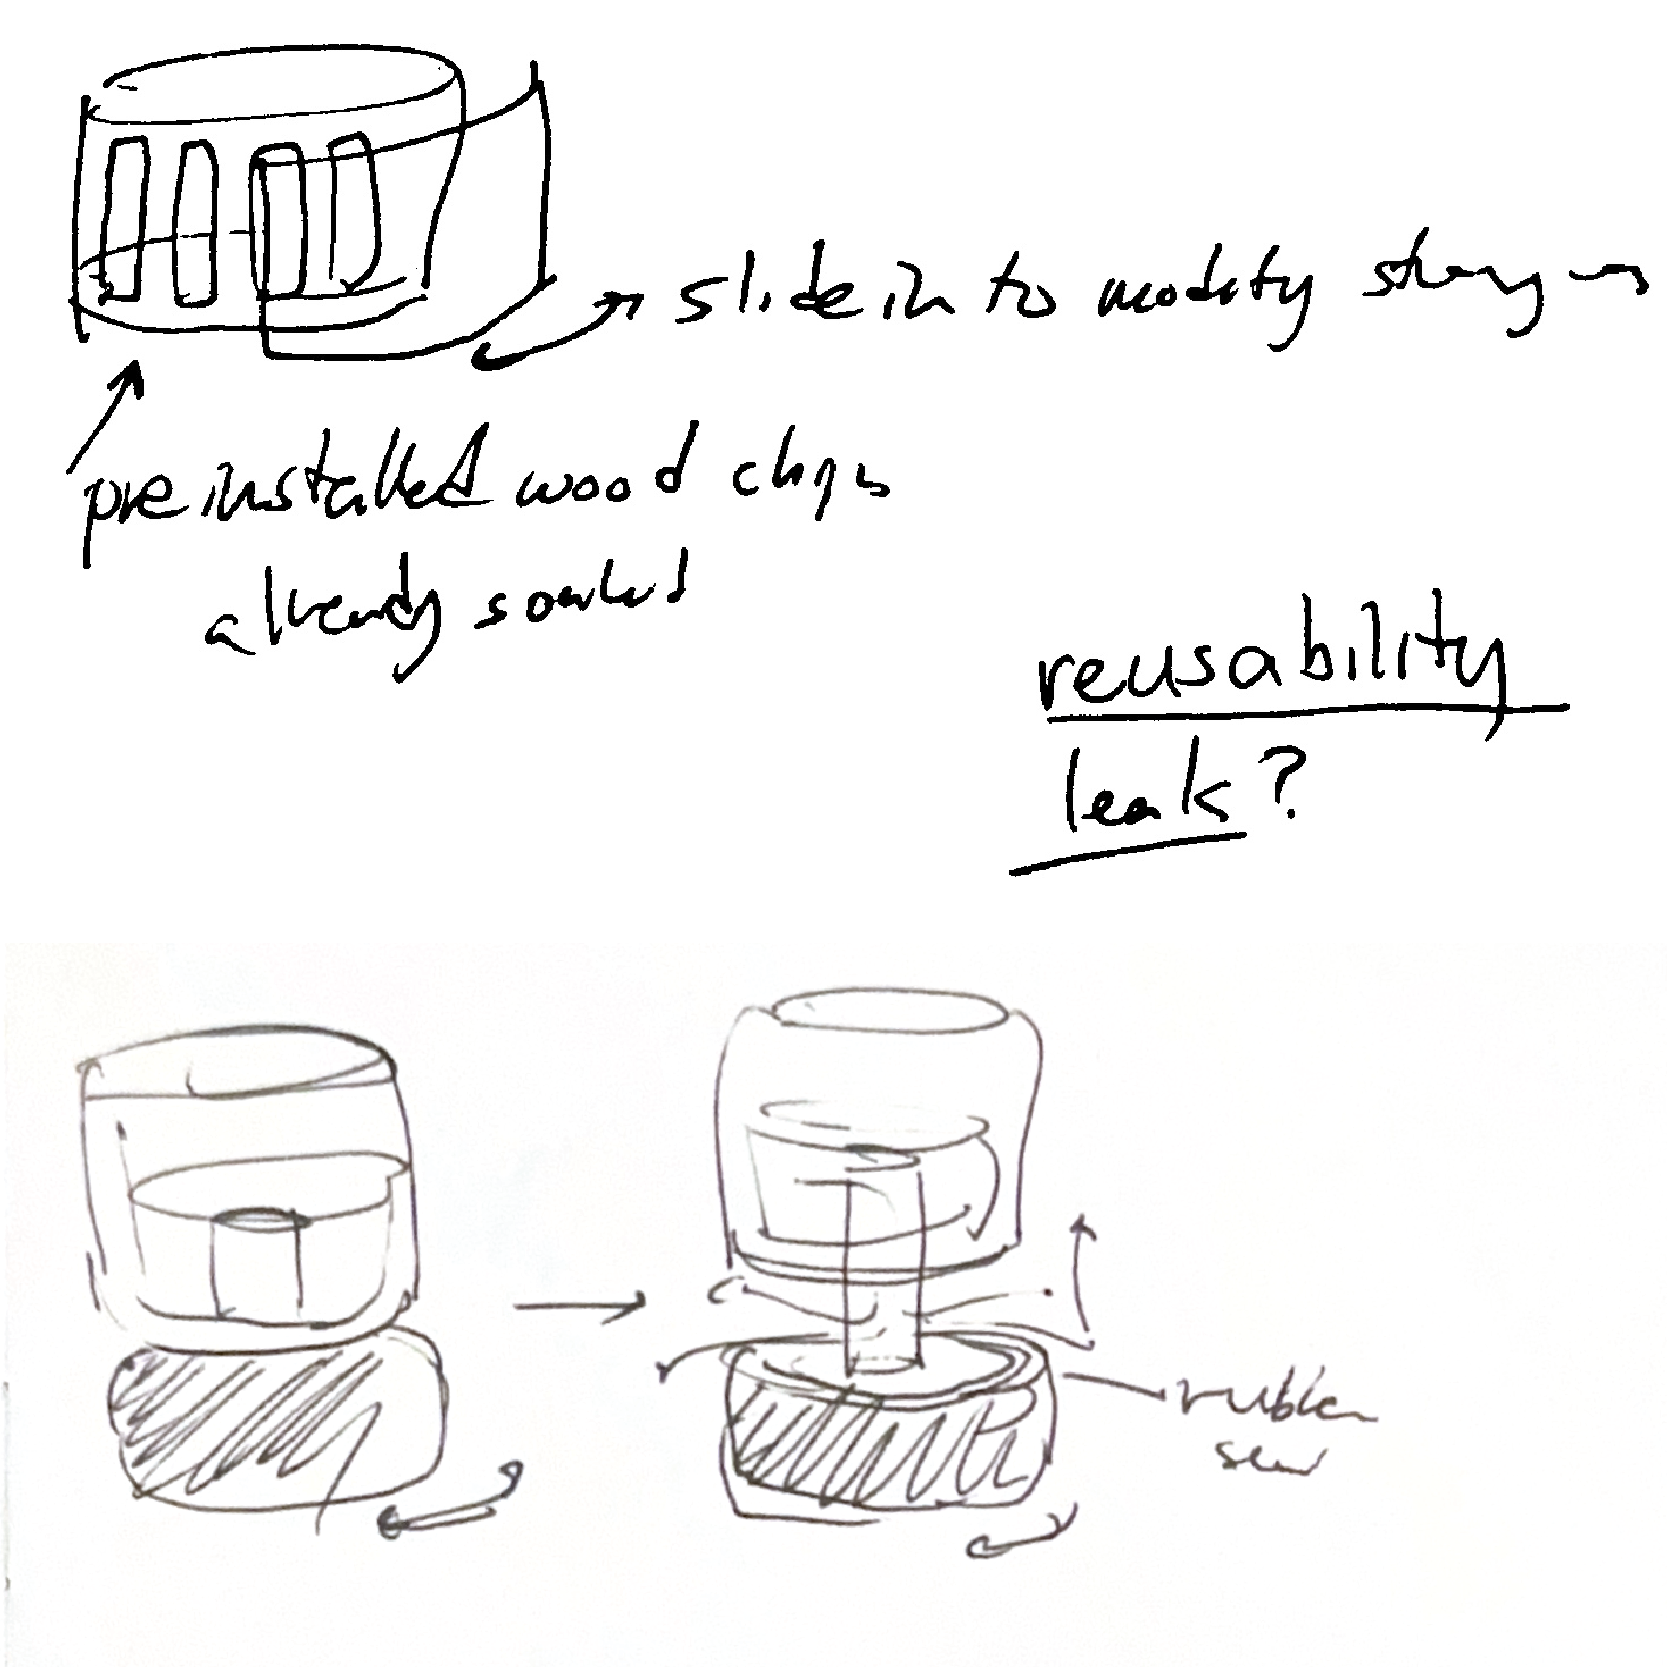 slide in to modify
preinstalled wood chips
already soaked
reusability
leak?
rubber